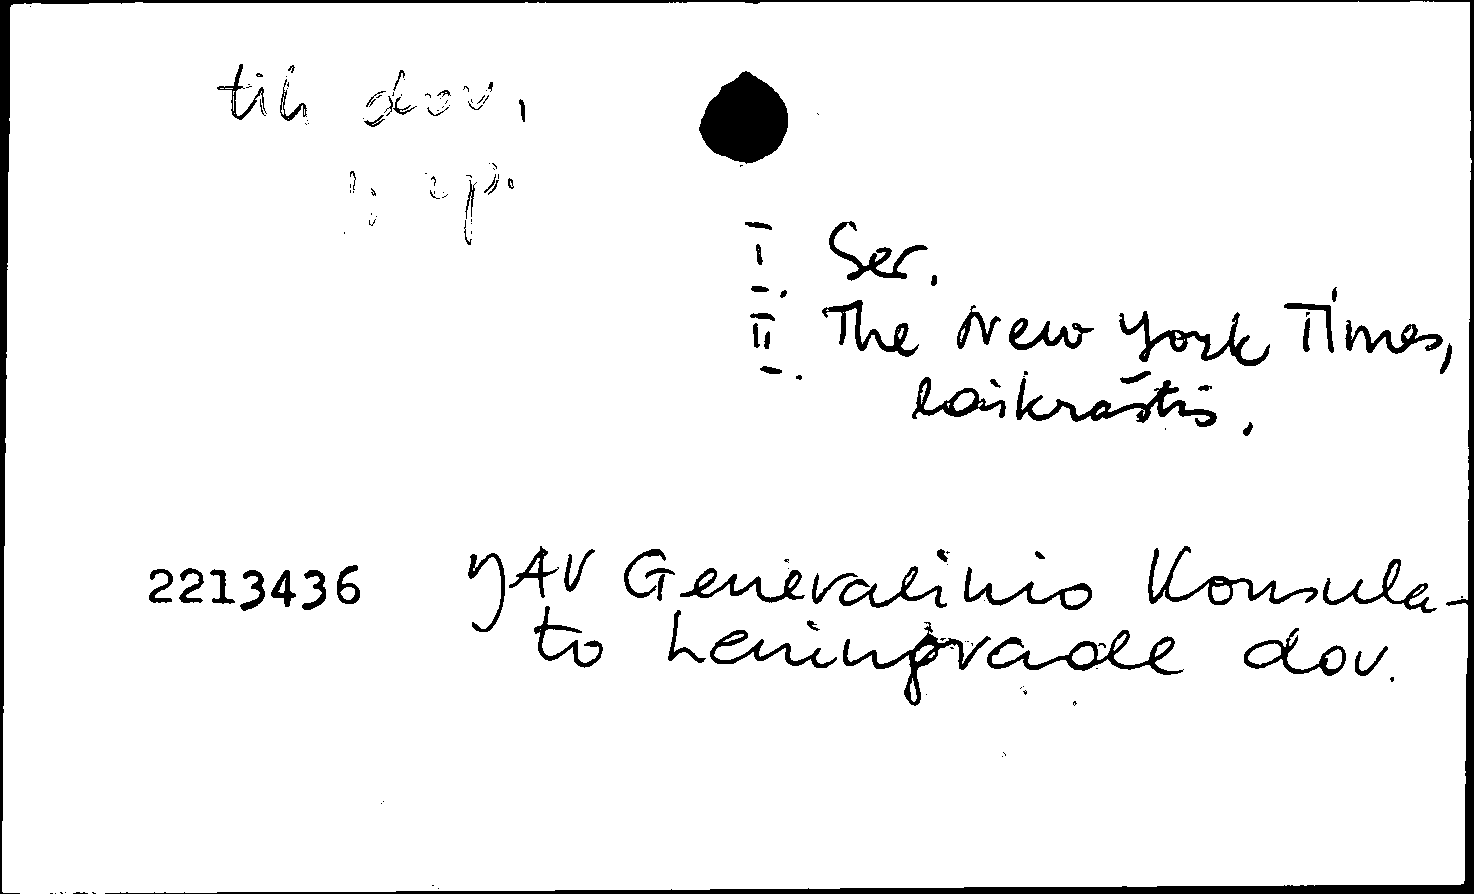 tik dov.
sp.
I. Ser.
II. The New York Times,
laikraštis.
2213436 JAV Generalinio Konsula-
to Leningrade dov.